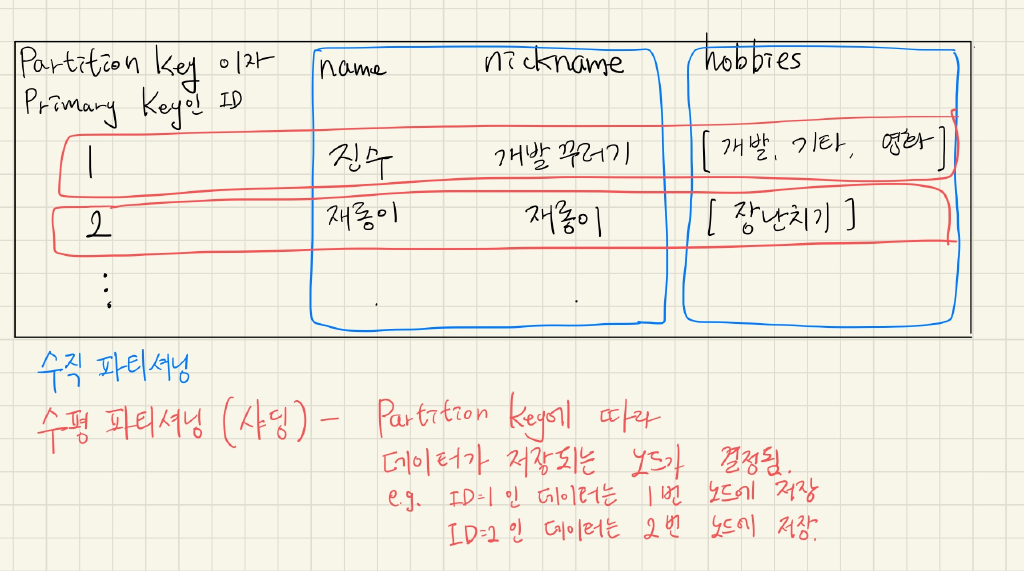 Partition Key 이자 name nickname hobbies
Primary Key인 ID
1 진수 개발 꾸러기 [ 개발, 기타, 영화 ]
2 재롱이 재롱이 [ 장난치기 ]
수직 파티셔닝
수평 파티셔닝 (샤딩) - Partition Key에 따라
데이터가 저장되는 노드가 결정됨.
e.g. ID=1 인 데이터는 1번 노드에 저장
ID=2 인 데이터는 2번 노드에 저장.